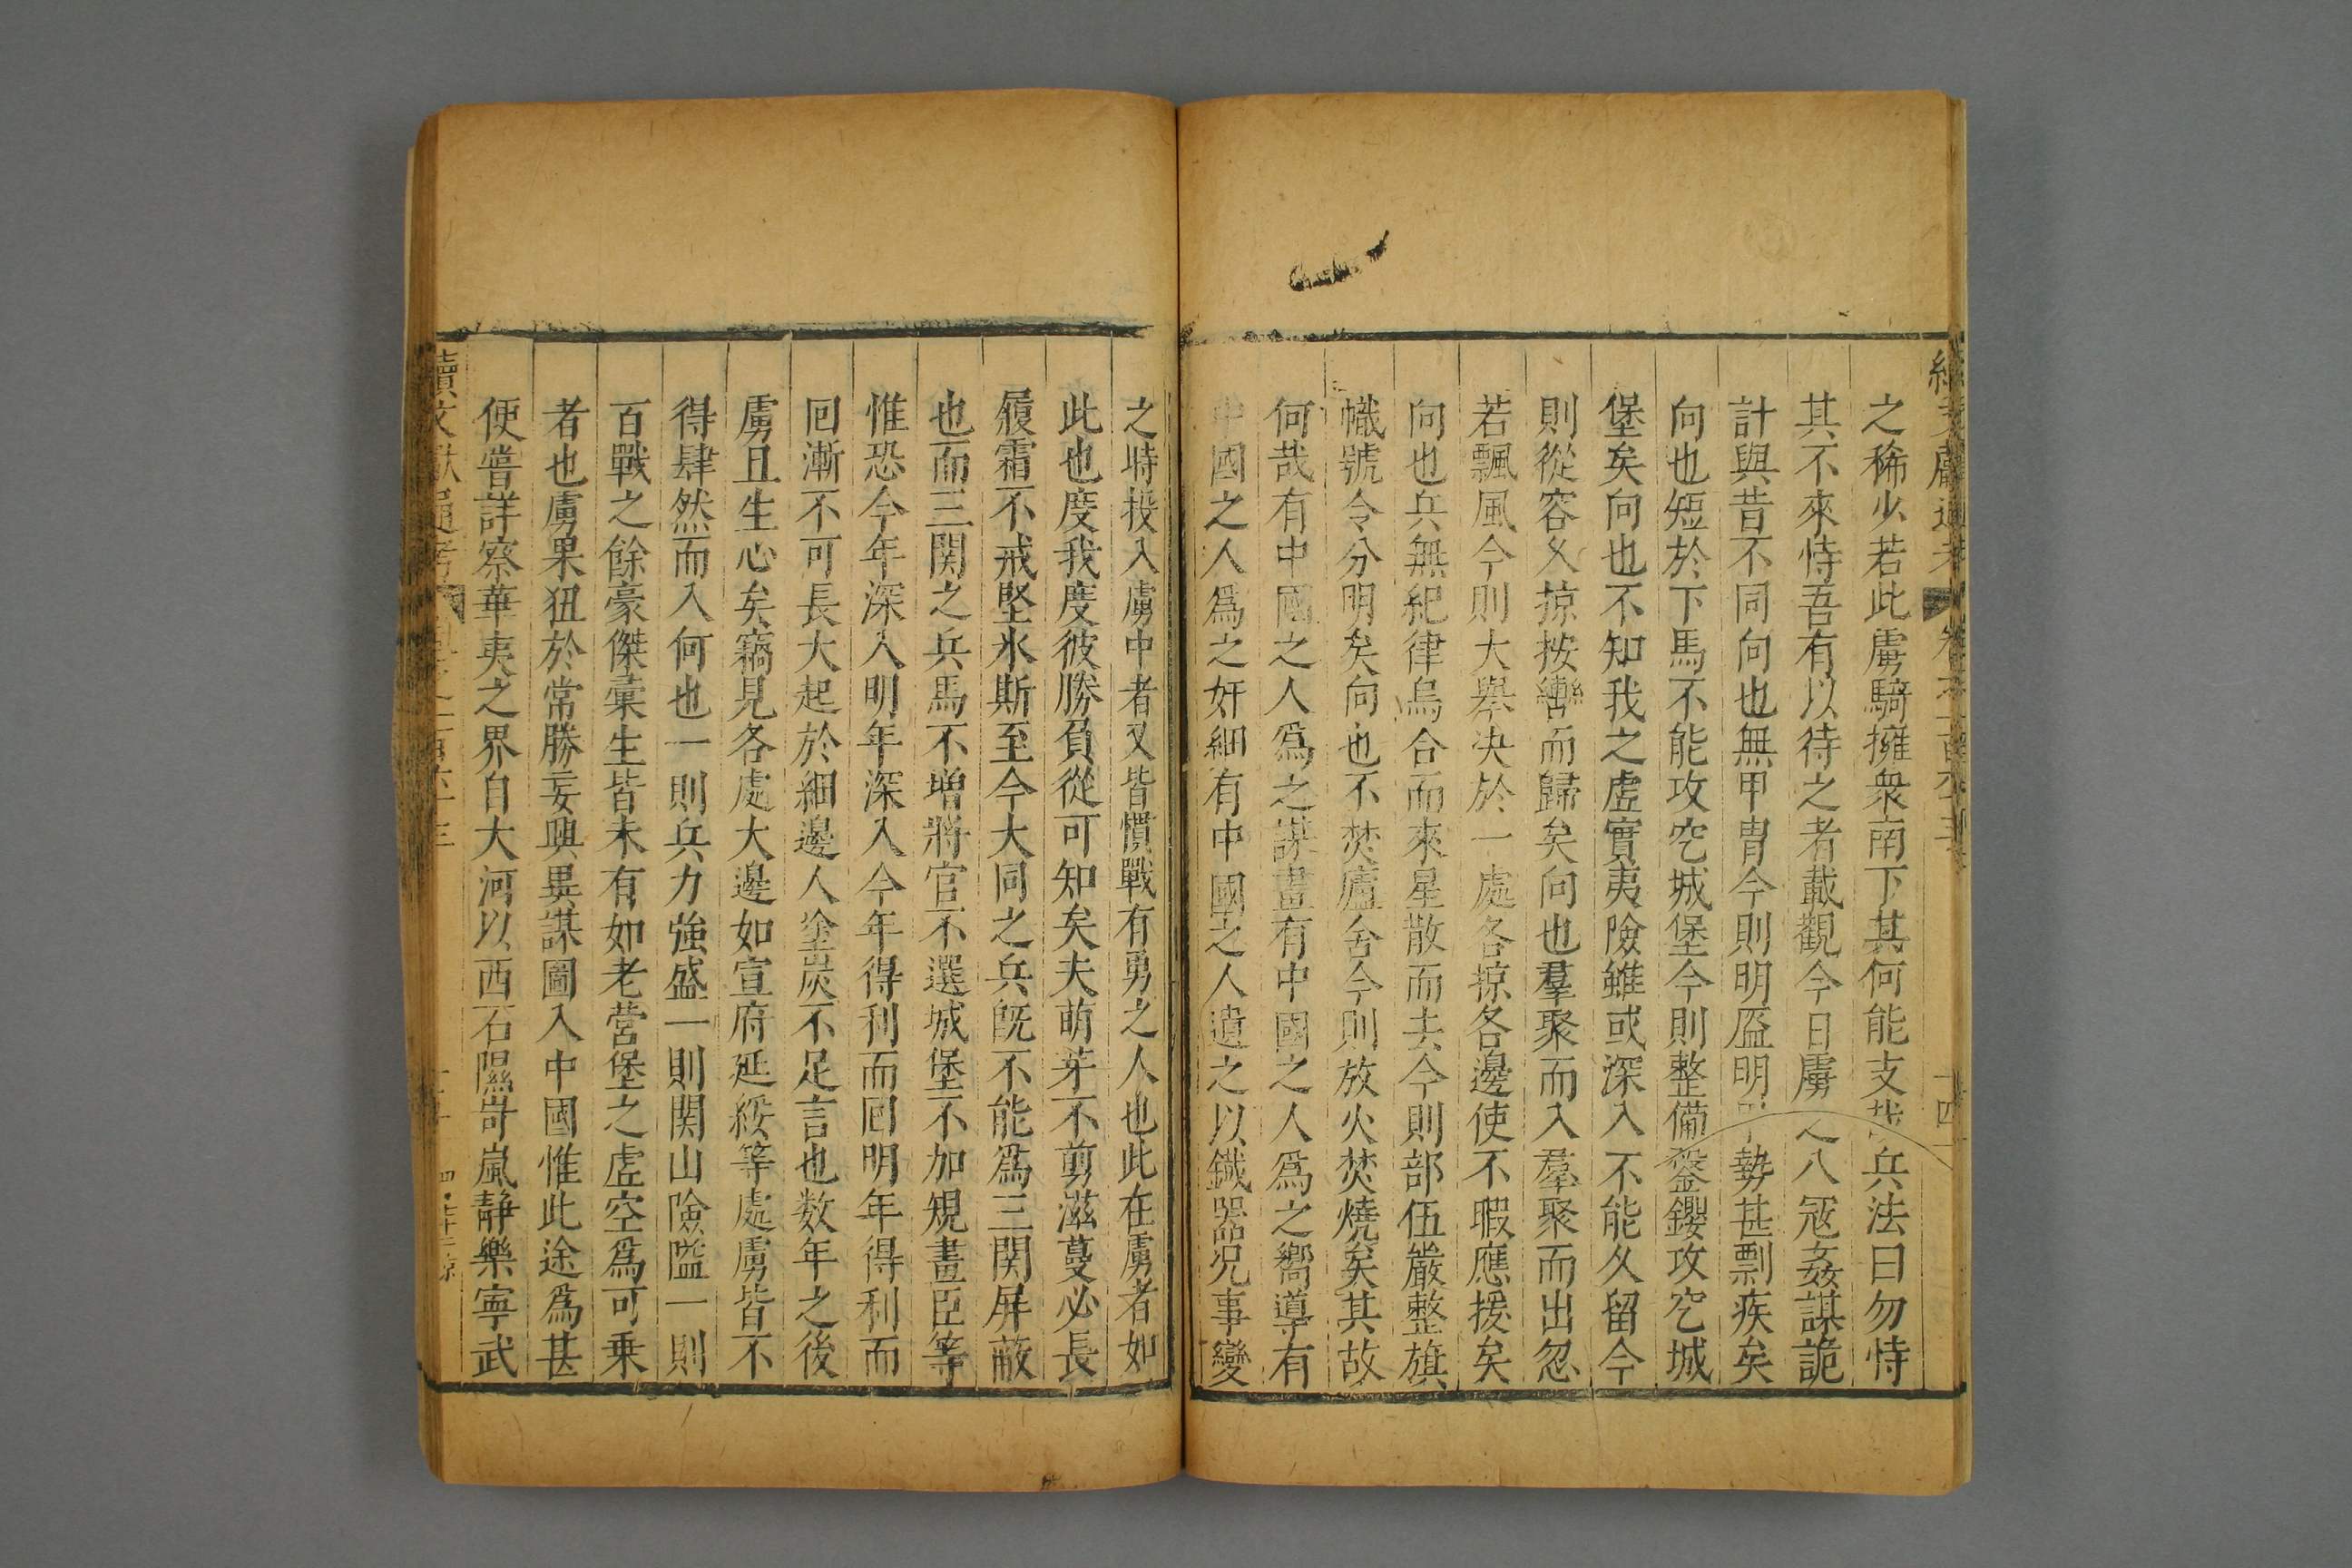 之稀少若此虜騎擁衆南下其何能支哉兵法曰勿恃
其不來恃吾有以待之者載觀今日虜之入冦姦謀詭
計與昔不同向也無甲冑今則明盔明甲勢甚剽疾矣
向也短於下馬不能攻空城堡今則整備鍫钁攻空城
堡矣向也不知我之虛實夷險雖或深入不能久留今
則從容久掠按轡而歸矣向也羣聚而入羣聚而出忽
若飄風今則大舉决於一處各掠各邊使不暇應援矣
向也兵無紀律烏合而來星散而去今則部伍嚴整旗
幟號令分明矣向也不焚廬舍今則放火焚燒矣其故
何哉有中國之人爲之謀畫有中國之人爲之嚮導有
中國之人爲之奸細有中國之人遺之以鐵器况事變
之時投入虜中者又皆慣戰有勇之人也此在虜者如
此也度我度彼勝負從可知矣夫萌芽不剪滋蔓必長
履霜不戒堅氷斯至今大同之兵旣不能爲三関屏蔽
也而三関之兵馬不增將官不選城堡不加規畫臣等
惟恐今年深入明年深入今年得利而囘明年得利而
囘漸不可長大起於細邊人塗炭不足言也数年之後
虜且生心矣竊見各處大邊如宣府延綏等處虜皆不
得肆然而入何也一則兵力強盛一則関山險隘一則
百戰之餘豪傑彙生皆未有如老營堡之虛空爲可乗
者也虜果狃於常勝妄興異謀圖入中國惟此途爲甚
便嘗詳察華夷之界自大河以西石隰岢嵐静樂寕武
續文獻通考